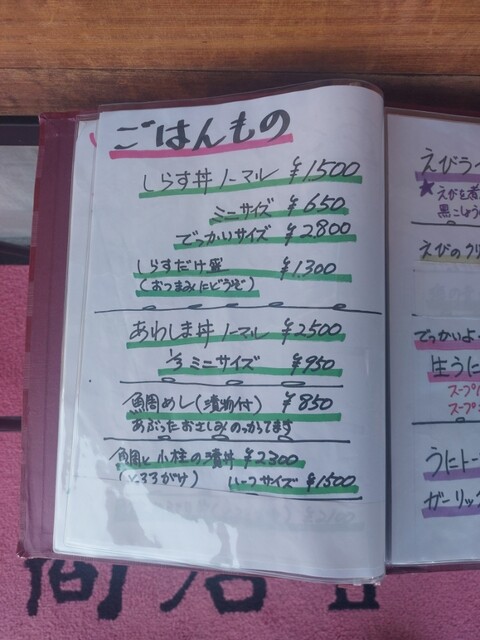 ごはんもの
しらす丼 ノーマル ¥1500
ミニサイズ ¥650
でっかいサイズ ¥2800
しらすだけ盛 ¥1300
(おつまみにどうぞ)
あわしま丼 ノーマル ¥2500
1/3 ミニサイズ ¥950
鯛めし(漬物付) ¥850
あぶったおさしみのっかってます
鯛と小柱の漬丼 ¥2300
(とろろがけ) ハーフサイズ ¥1500
えびラー
★えびを煮
黒こしょう
えびのクリ
でっかいよ
生うに
スープパ
スープ
うにトー
ガーリック
商店